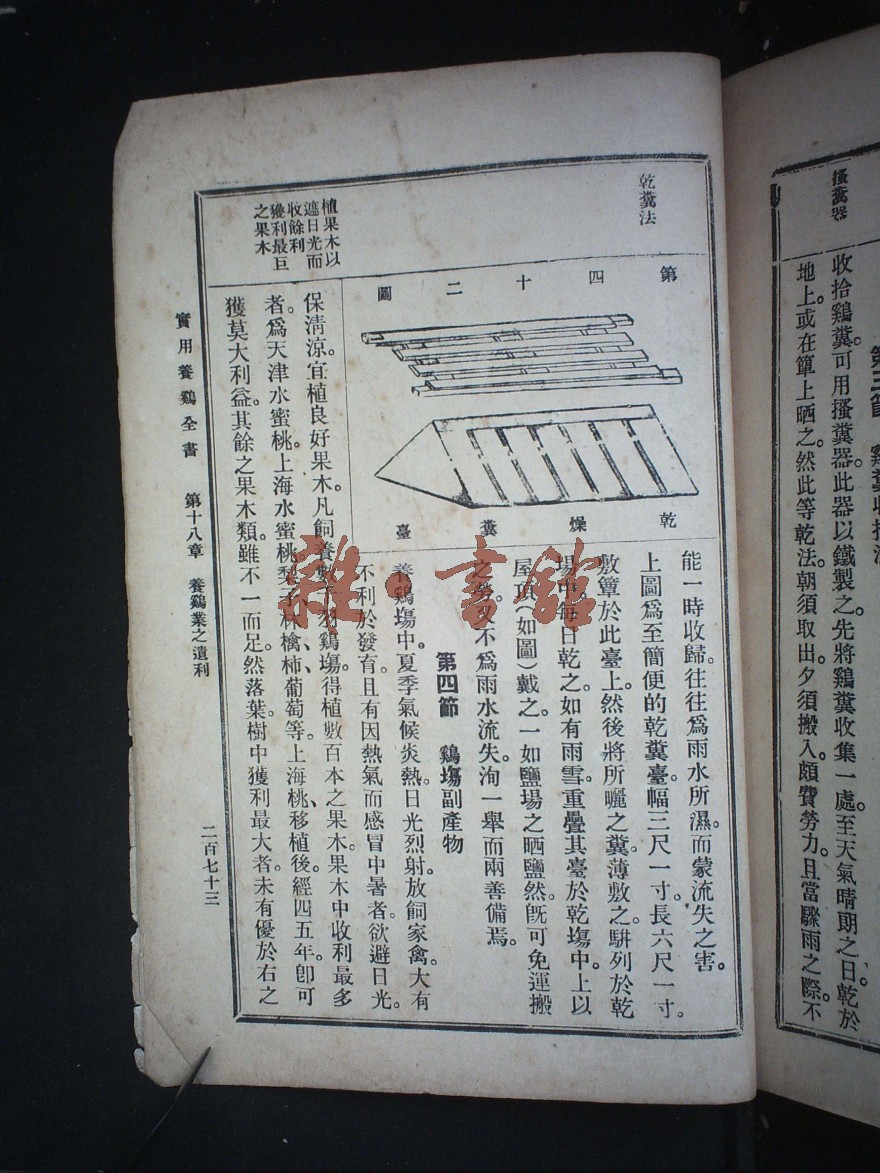 搔糞器
第三節
收拾鷄糞。可用搔糞器。此器以鐵製之。先將鷄糞收集一處。至天氣晴朗之日。乾於
地上。或在簞上晒之。然此等乾法。朝須取出。夕須搬入。頗費勞力。且當驟雨之際。不
乾糞法
能一時收歸。往往爲雨水所濕。而蒙流失之害。
上圖爲至簡便的乾糞臺。幅三尺一寸。長六尺一寸。
敷簞於此臺上。然後將所曬之糞。薄敷之。駢列於乾
塲中。每日乾之。如有雨雪。重疊其臺於乾塲中。上以
屋頂(如圖)戴之。一如鹽場之晒鹽然。旣可免運搬
之勞。又不爲雨水流失。洵一舉而兩善備焉。
第四十二圖
乾燥糞臺
第四節 鷄塲副產物
養鷄塲中。夏季氣候炎熱。日光烈射。放飼家禽。大有
不利於發育。且有因熱氣而感冒中暑者。欲避日光。
植果木以
遮日光而
收餘利
獲利最巨
之果木
保清涼。宜植良好果木。凡飼養數羽鷄塲。得植數百本之果木。果木中收利最多
者。爲天津水蜜桃。上海水蜜桃。梨子、林檎、柿、葡萄等。上海桃移植後。經四五年。卽可
獲莫大利益。其餘之果木類。雖不一而足。然落葉樹中獲利最大者。未有優於右之
實用養鷄全書 第十八章 養鷄業之遺利 二百七十三
雜書館